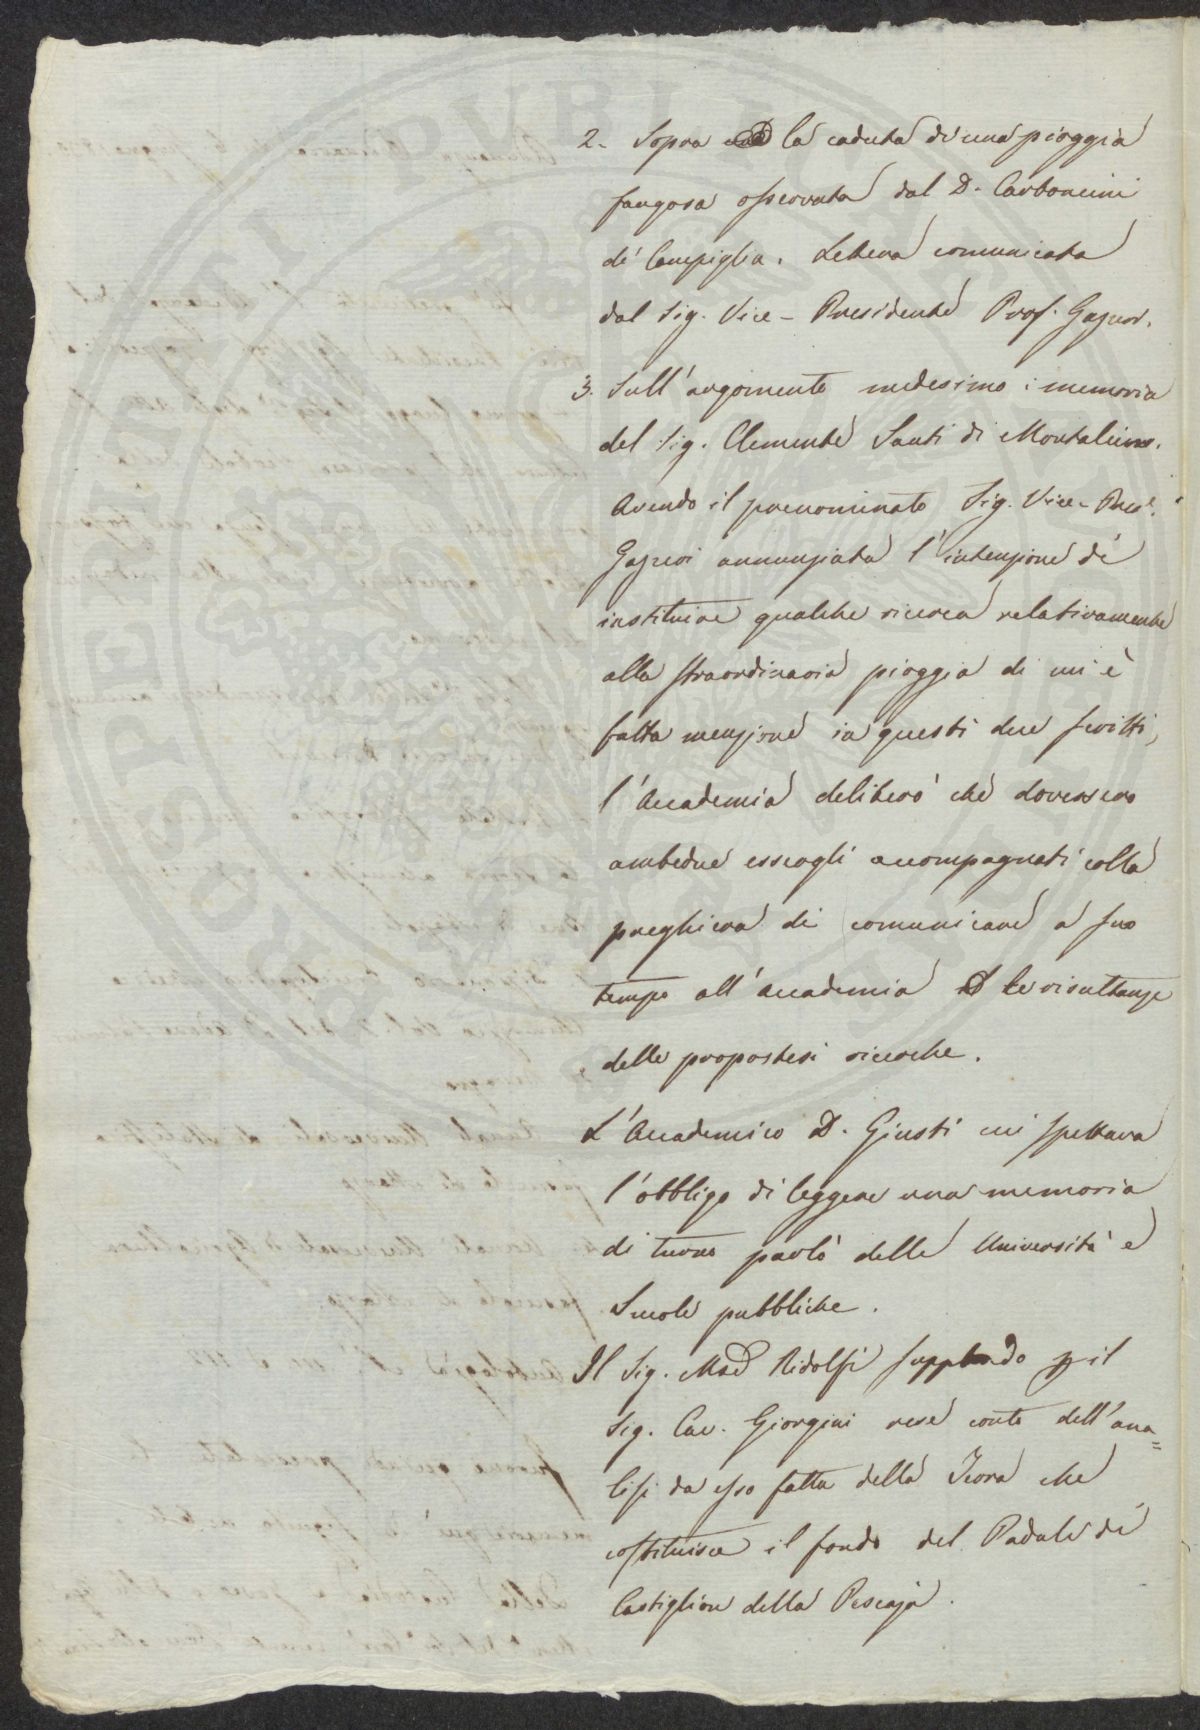 2. Sopra la caduta di una pioggia
fangosa osservata dal D. Carboncini
di Campiglia. Lettera comunicata
dal Sig. Vice-Presidente Prof. Gazzeri.
3. Sull'argomento medesimo: memoria
del Sig. Clemente Santi di Montalcino.
Avendo il prenominato Sig. Vice-Pres.e
Gazzeri annunziata l'intenzione di
instituire qualche ricerca relativamente
alla straordinaria pioggia di cui è
fatta menzione in questi due scritti,
l'Accademia deliberò che dovessero
ambedue essergli accompagnati colla
preghiera di comunicare a suo
tempo all'Accademia le risultanze
delle propostesi ricerche.
L'Accademico D. Giusti cui spettava
l'obbligo di leggere una memoria
di turno parlò delle Università e
Scuole pubbliche.
Il Sig. Ridolfi supplendo il
Sig. Cav. Giorgini rese conto dell'ana=
lisi da esso fatta della Terra che
costituisce il fondo del Padule di
Castiglion della Pescaja.